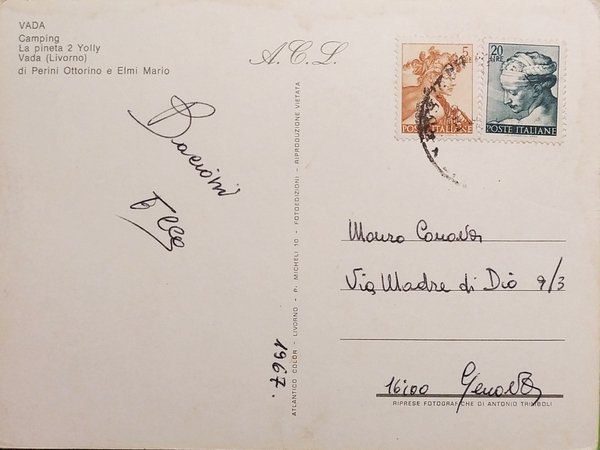 VADA
Camping
La pineta 2 Yolly
Vada (Livorno)
di Perini Ottorino e Elmi Mario
A.C.L.
5
POSTE ITALIANE
20
LIRE
POSTE ITALIANE
Bacioni
Mauro
Via Madre di Dio 9/3
16100 Genova
RIPRESE FOTOGRAFICHE DI ANTONIO TRIMBOLI
1967.
ATLANTICO COLOR - LIVORNO - P. MICHELI 10 - FOTOEDIZIONI - RIPRODUZIONE VIETATA